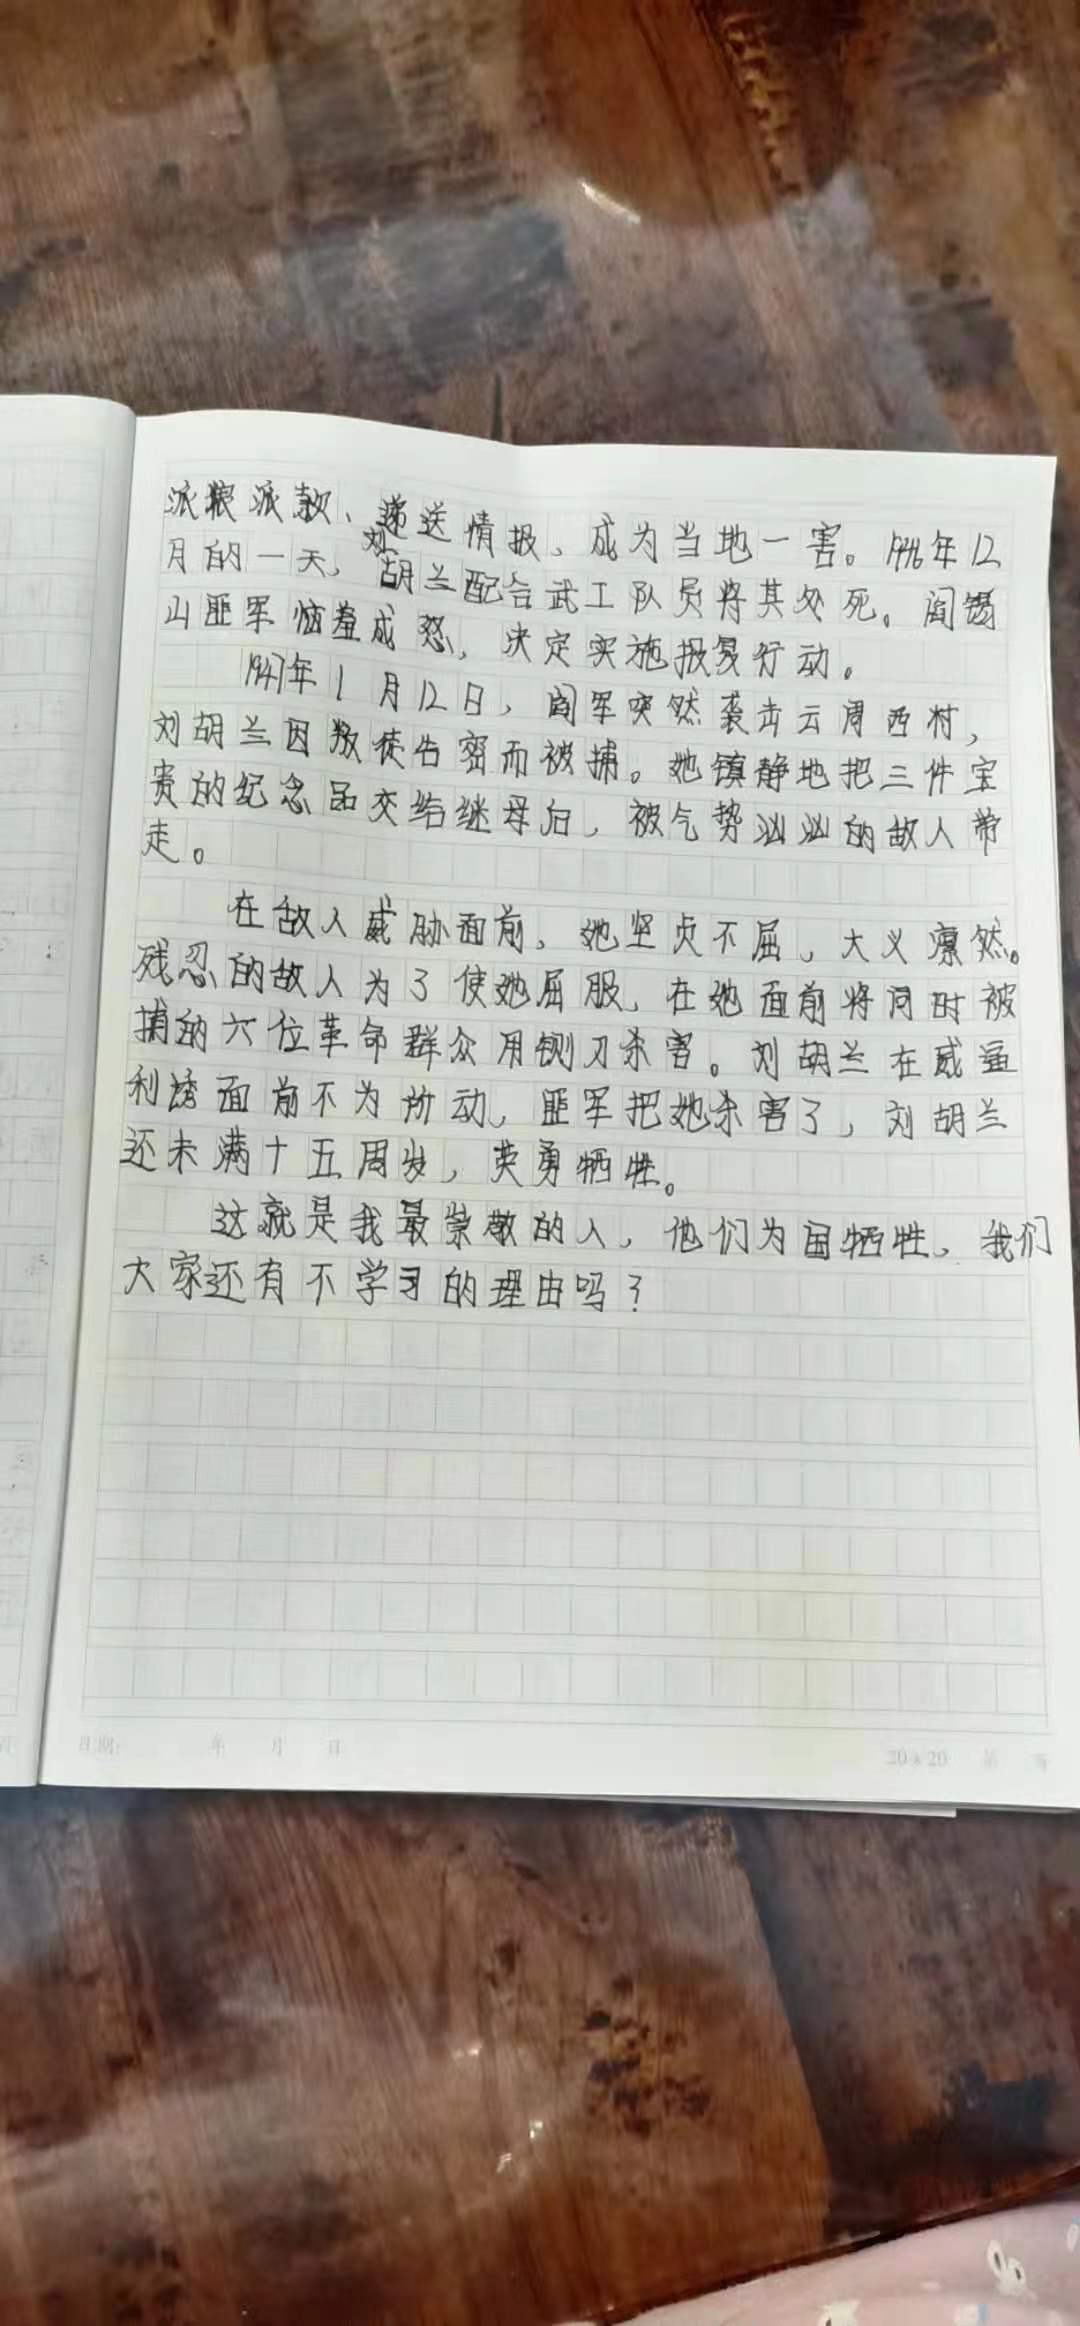 派粮派款、递送情报，成为当地一害。1946年12
月的一天，刘胡兰配合武工队员将其处死。阎锡
山匪军恼羞成怒，决定实施报复行动。
1947年1月12日，阎军突然袭击云周西村，
刘胡兰因叛徒告密而被捕。她镇静地把三件宝
贵的纪念品交给继母后，被气势汹汹的敌人带
走。
在敌人威胁面前，她坚贞不屈，大义凛然。
残忍的敌人为了使她屈服，在她面前将同时被
捕的六位革命群众用铡刀杀害。刘胡兰在威逼
利诱面前不为所动，匪军把她杀害了，刘胡兰
还未满十五周岁，英勇牺牲。
这就是我最崇敬的人，他们为国牺牲，我们
大家还有不学习的理由吗？
日期： 年 月 日 20×20 第